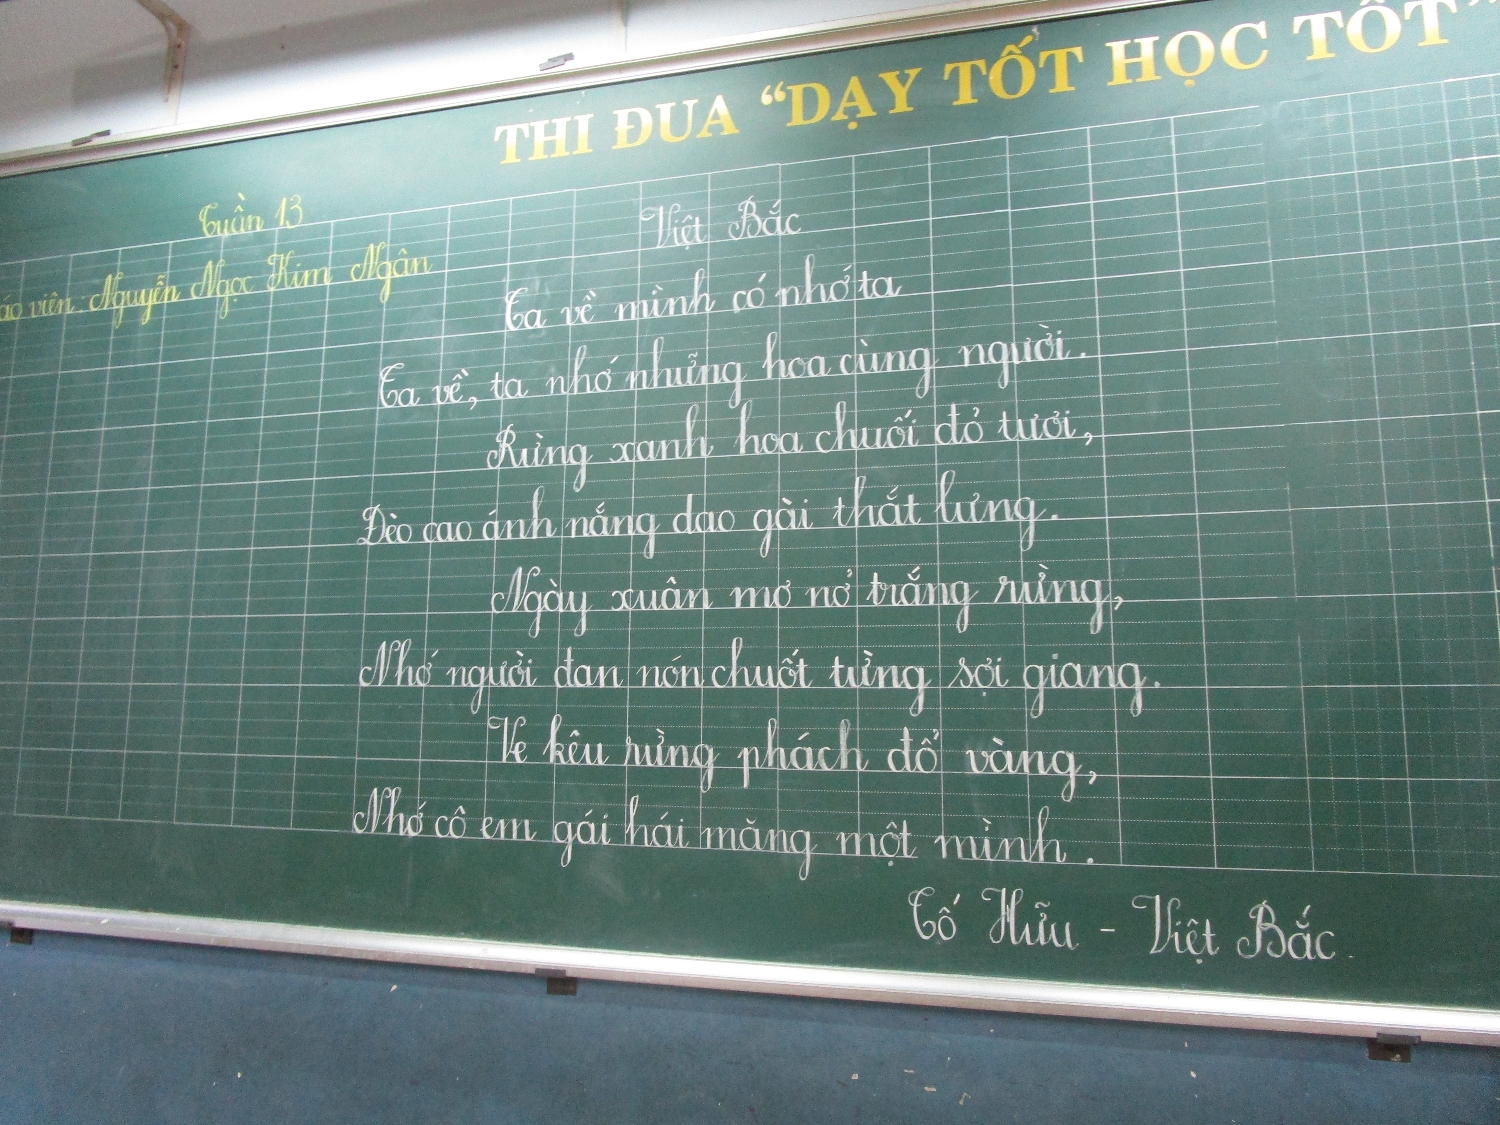 THI ĐUA “DẠY TỐT HỌC TỐT”
Tuần 13
áo viên. Nguyễn Ngọc Kim Ngân
Việt Bắc
Ta về mình có nhớ ta
Ta về, ta nhớ những hoa cùng người.
Rừng xanh hoa chuối đỏ tươi,
Đèo cao ánh nắng dao gài thắt lưng.
Ngày xuân mơ nở trắng rừng,
Nhớ người đan nón chuốt từng sợi giang.
Ve kêu rừng phách đổ vàng,
Nhớ cô em gái hái măng một mình.
Tố Hữu - Việt Bắc.